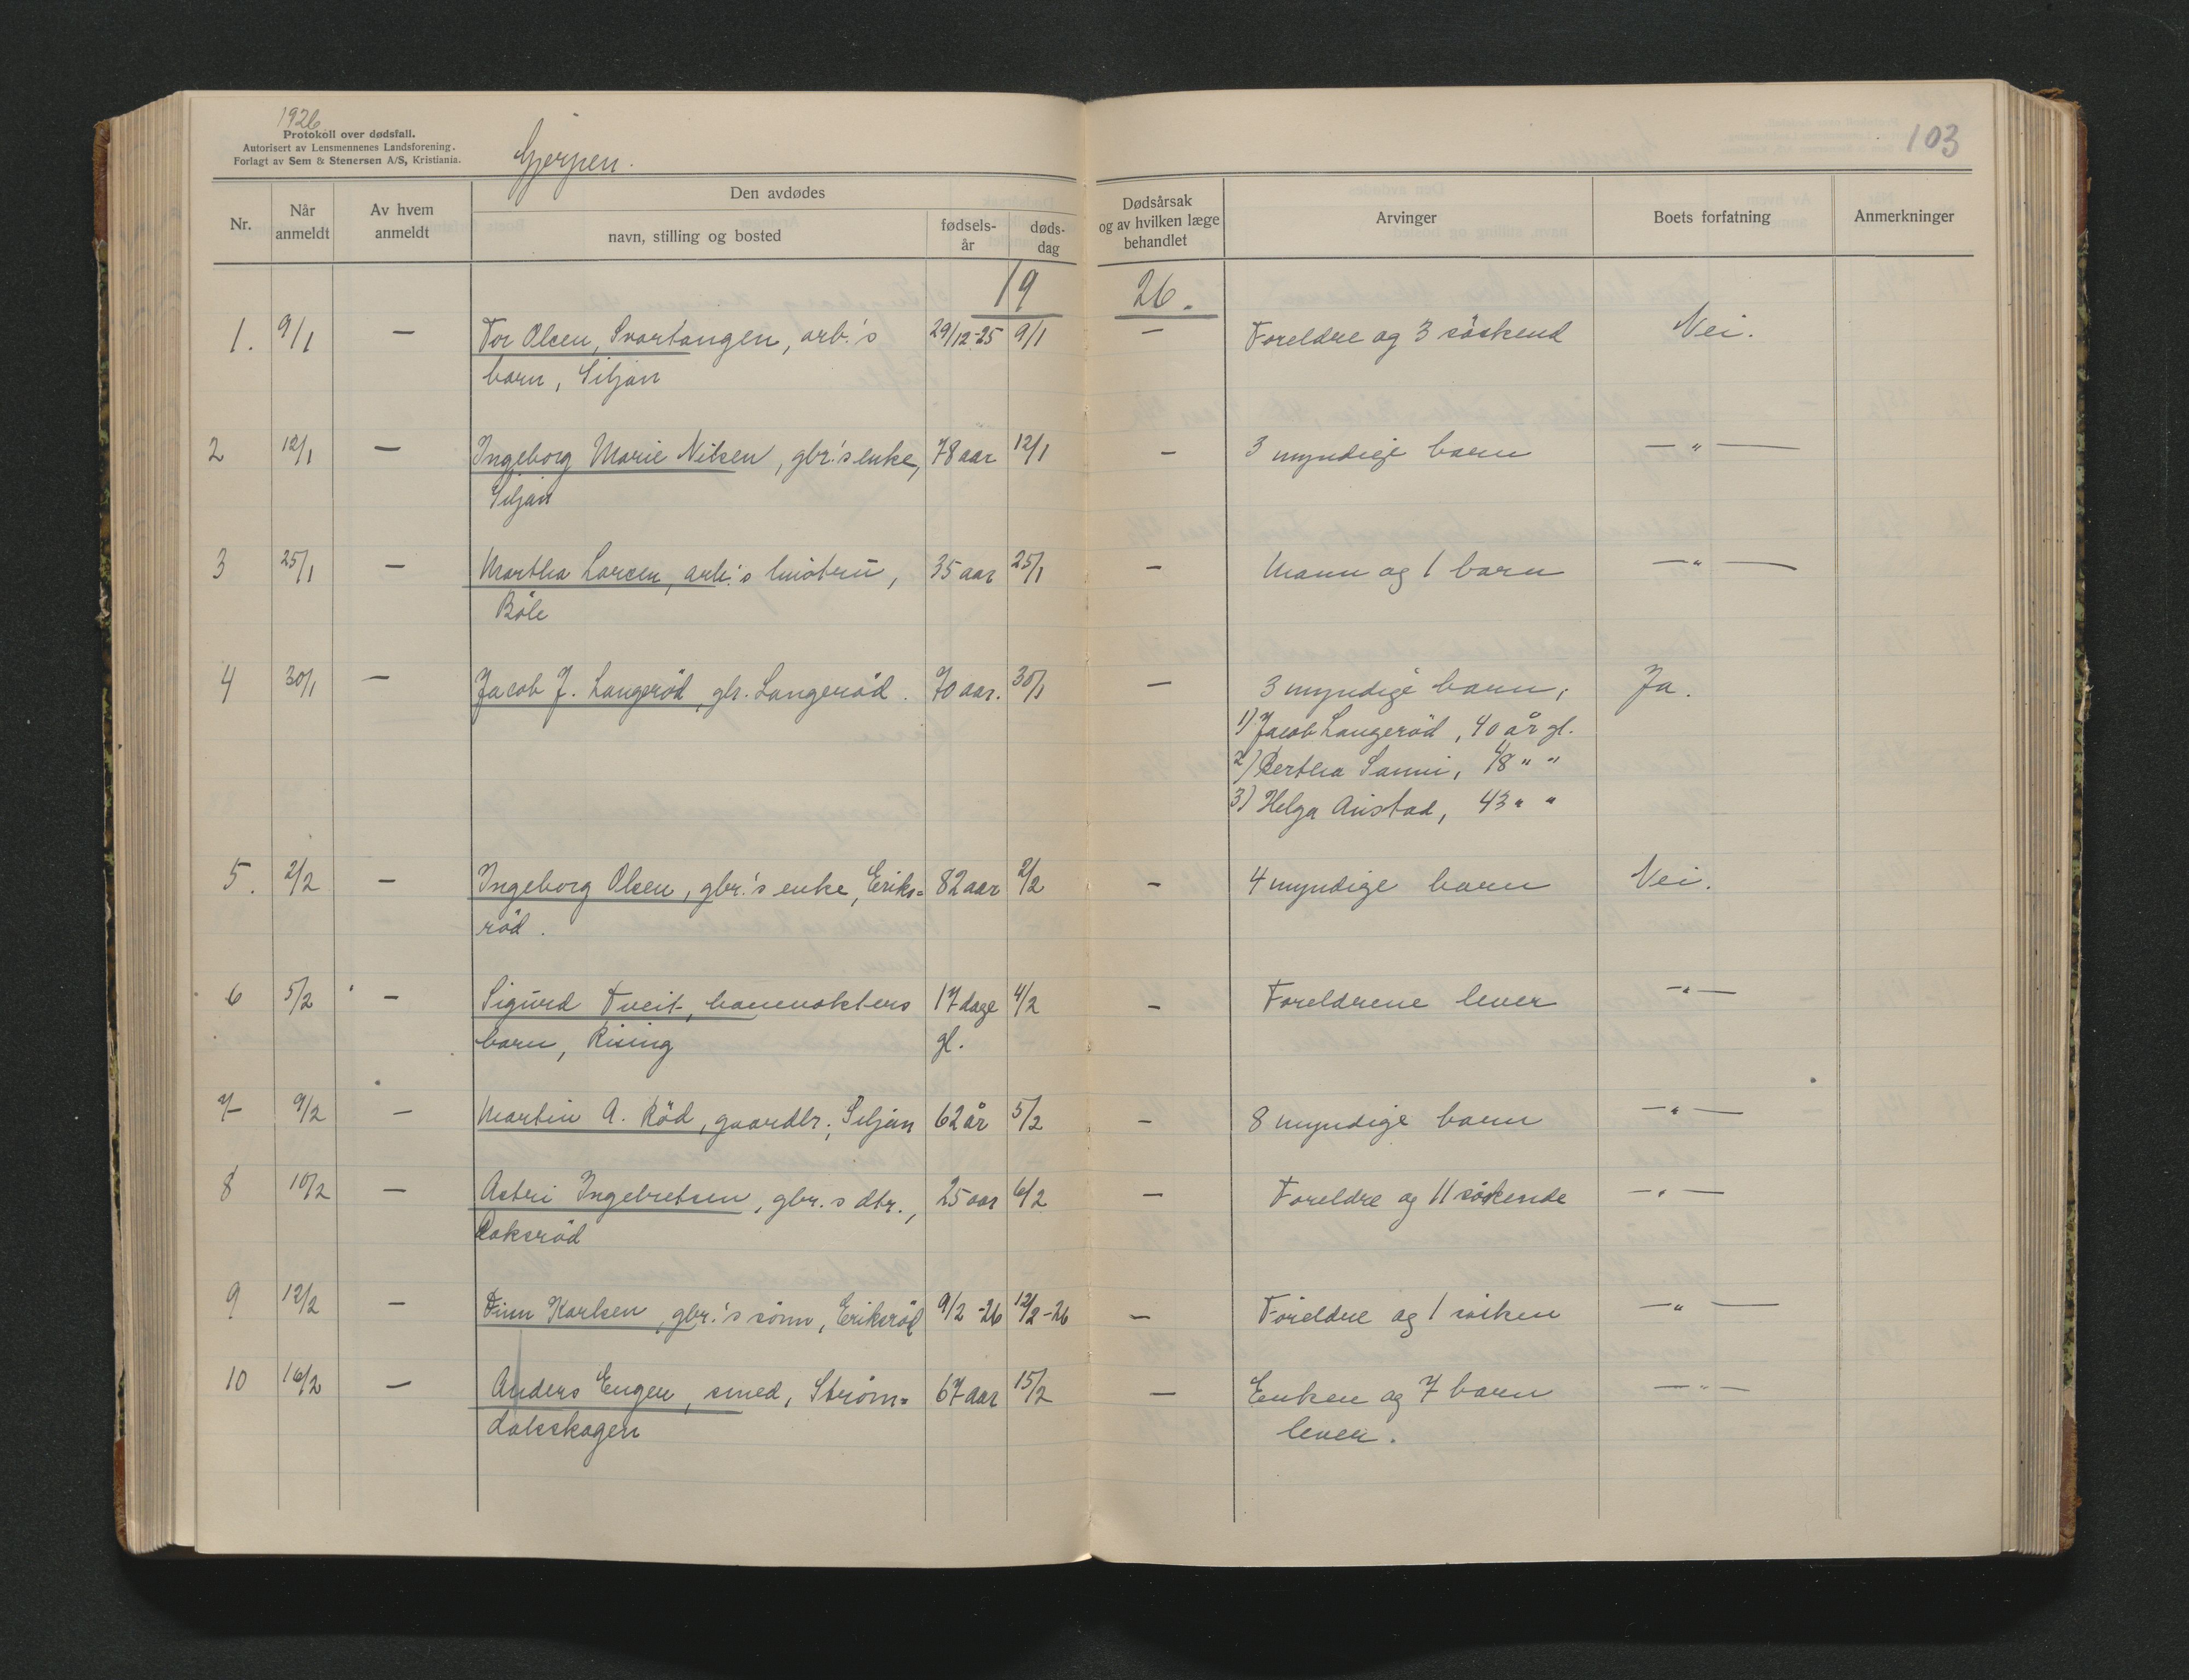 1926
Protokoll over dødsfall.
Autorisert av Lensmennenes Landsforening.
Forlagt av Sem & Stenersen A/S, Kristiania.
Gjerpen.
103
Nr.
Når anmeldt
Av hvem anmeldt
Den avdødes
navn, stilling og bosted
fødsels-år
døds-dag
Dødsårsak og av hvilken læge behandlet
Arvinger
Boets forfatning
Anmerkninger
19 26.
1. 9/1 — Tor Olsen, Svartangen, arb.'s 29/12-25 9/1 — Foreldre og 3 söskend Nei.
barn, Siljan
2 12/1 — Ingeborg Marie Nilsen, gbr.'s enke, 78 aar 12/1 — 3 myndige barn —"—
Siljan
3 25/1 — Martha Larsen, arb.'s hüstrü, 35 aar 25/1 — Mann og 1 barn —"—
Böle
4 30/1 — Jacob J. Langeröd, gbr. Langeröd. 70 aar. 30/1 — 3 myndige barn; Ja.
1) Jacob Langeröd, 40 år gl.
2) Bertha Sanni, 48 " "
3) Helga Aüstad, 43 " "
5. 2/2 — Ingeborg Olsen, gbr.'s enke, Eriks= 82 aar 2/2 — 4 myndige barn Nei.
röd.
6 5/2 — Sigürd Tveit, banevokters 17 dage 4/2 — Foreldrene lever —"—
barn, Rising gl.
7 9/2 — Martin A. Röd, gaardbr., Siljan 62 år 5/2 — 8 myndige barn —"—
8 10/2 — Astri Ingebretsen, gbr.s dtr., 25 aar 6/2 — Foreldre og 11 söskende —"—
Roksröd
9 12/2 — Finn Karlsen, gbr.'s sönn, Eriksröd 9/2-26 12/2-26 — Foreldre og 1 södsken —"—
10 16/2 — Anders Engen, smed, Ström= 67 aar 15/2 — Enken og 7 barn —"—
dalsskogen lever.